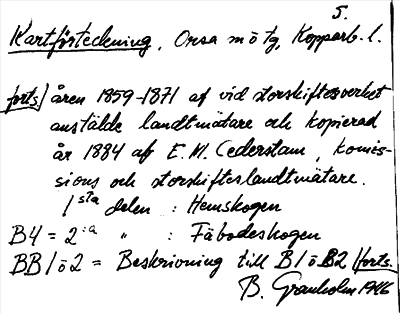 5.
Kartförteckning, Orsa m ö tg, Kopparb. l.
forts/ åren 1859-1871 af vid storskiftesverket
anstälde landtmätare och kopierad
år 1884 af E. M. Cederstam, komis-
sions och storskifteslandtmätare.
1 sta delen : Hemskogen
B4 = 2:a " : Fäbodeskogen
BB1 ö 2 = Beskrivning till B1 ö B2 /forts.
B. Granholm 1946